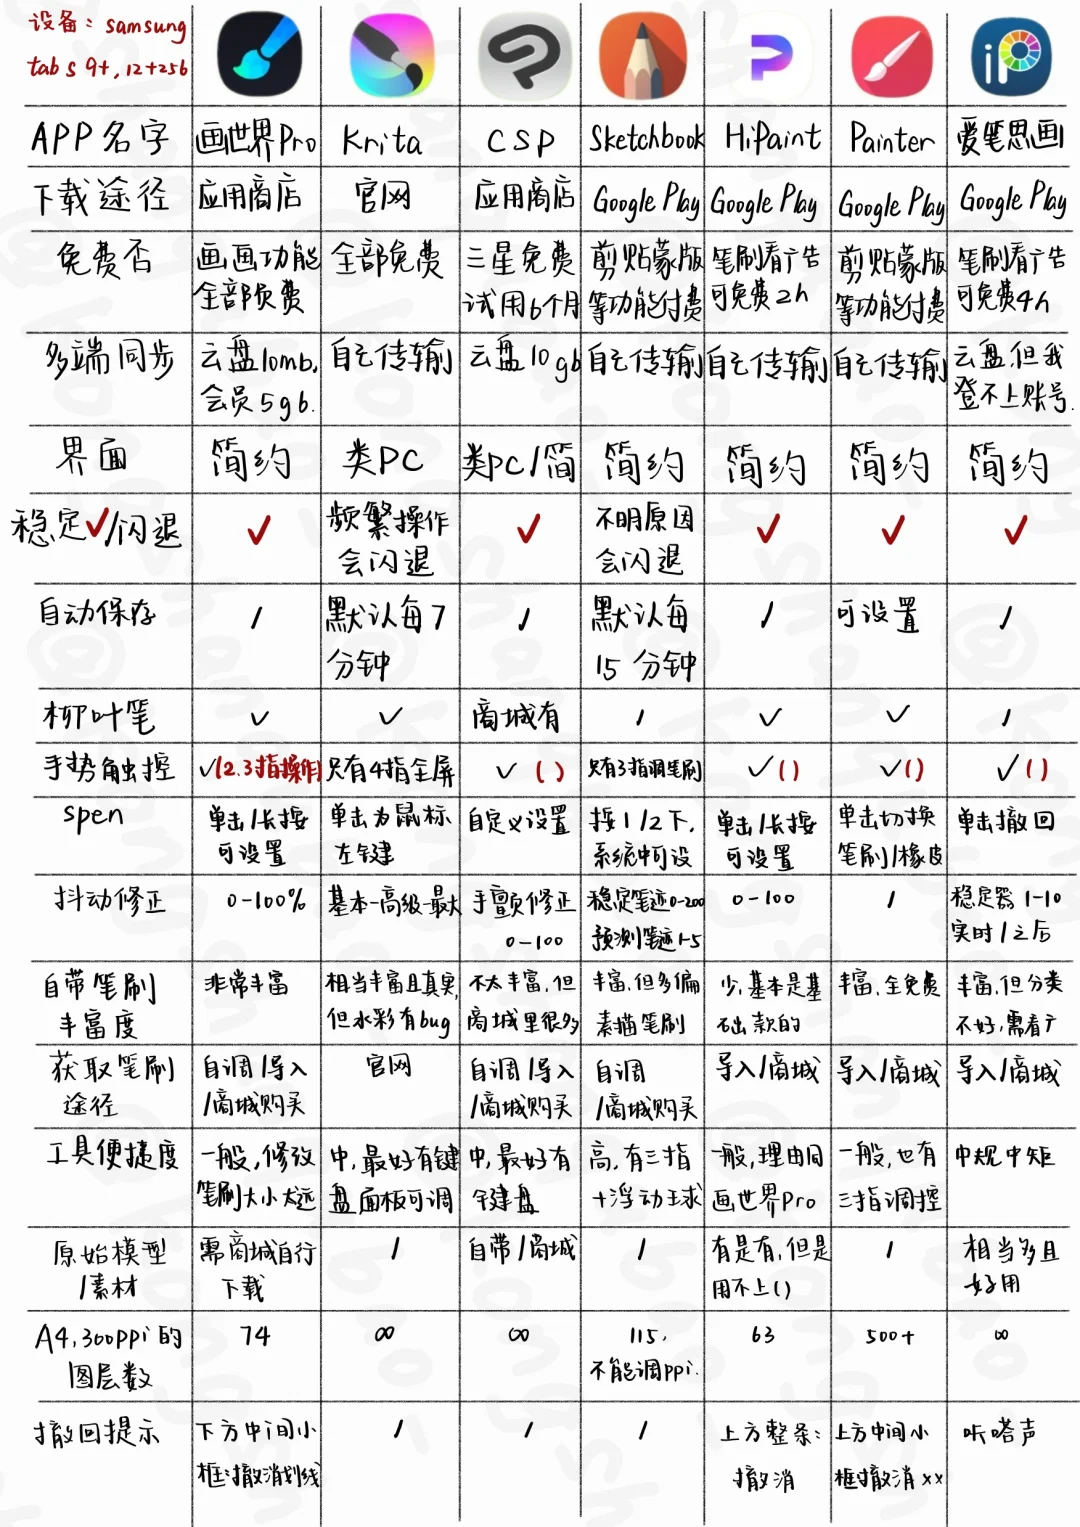 设备：samsung
tab s 9+, 12+256
APP名字 画世界Pro Krita CSP Sketchbook HiPaint Painter 爱笔思画
下载途径 应用商店 官网 应用商店 Google Play Google Play Google Play Google Play
免费否 画画功能 全部免费 三星免费 剪贴蒙版 笔刷看广告 剪贴蒙版 笔刷看广告
全部免费 试用6个月 等功能付费 可免费2h 等功能付费 可免费4h
多端同步 云盘10mb, 自己传输 云盘10gb 自己传输 自己传输 自己传输 云盘,但我
会员5gb. 登不上账号.
界面 简约 类PC 类PC/简 简约 简约 简约 简约
稳定✓/闪退 ✓ 频繁操作 ✓ 不明原因 ✓ ✓ ✓
会闪退 会闪退
自动保存 / 默认每7 / 默认每 / 可设置 /
分钟 15 分钟
柳叶笔 ✓ ✓ 商城有 / ✓ ✓ /
手势触控 ✓(2.3指操作) 只有4指全屏 ✓ () 只有3指调笔刷 ✓() ✓() ✓()
spen 单击/长按 单击为鼠标 自定义设置 按1/2下, 单击/长按 单击切换 单击撤回
可设置 左键 系统中可设 可设置 笔刷/橡皮
抖动修正 0-100% 基本-高级-最大 手颤修正 稳定笔迹0-200 0-100 / 稳定器 1-10
0-100 预测笔迹1-5 实时/之后
自带笔刷 非常丰富 相当丰富且真实, 不太丰富,但 丰富,但多偏 少,基本是基 丰富,全免费 丰富,但分类
丰富度 但水彩有bug 商城里很多 素描笔刷 础款的 不好,需看广
获取笔刷 自调/导入 官网 自调/导入 自调 导入/商城 导入/商城 导入/商城
途径 /商城购买 /商城购买 /商城购买
工具便捷度 一般,修改 中,最好有键 中,最好有 高,有三指 一般,理由同 一般,也有 中规中矩
笔刷大小太远 盘,面板可调 键盘 +浮动球 画世界Pro 三指调控
原始模型 需商城自行 / 自带/商城 / 有是有,但是 / 相当多且
/素材 下载 用不上() 好用
A4,300ppi的 74 ∞ ∞ 115, 63 500+ ∞
图层数 不能调ppi.
撤回提示 下方中间小 / / / 上方整条: 上方中间小 咔嗒声
框:撤消划线 撤消 框撤消××